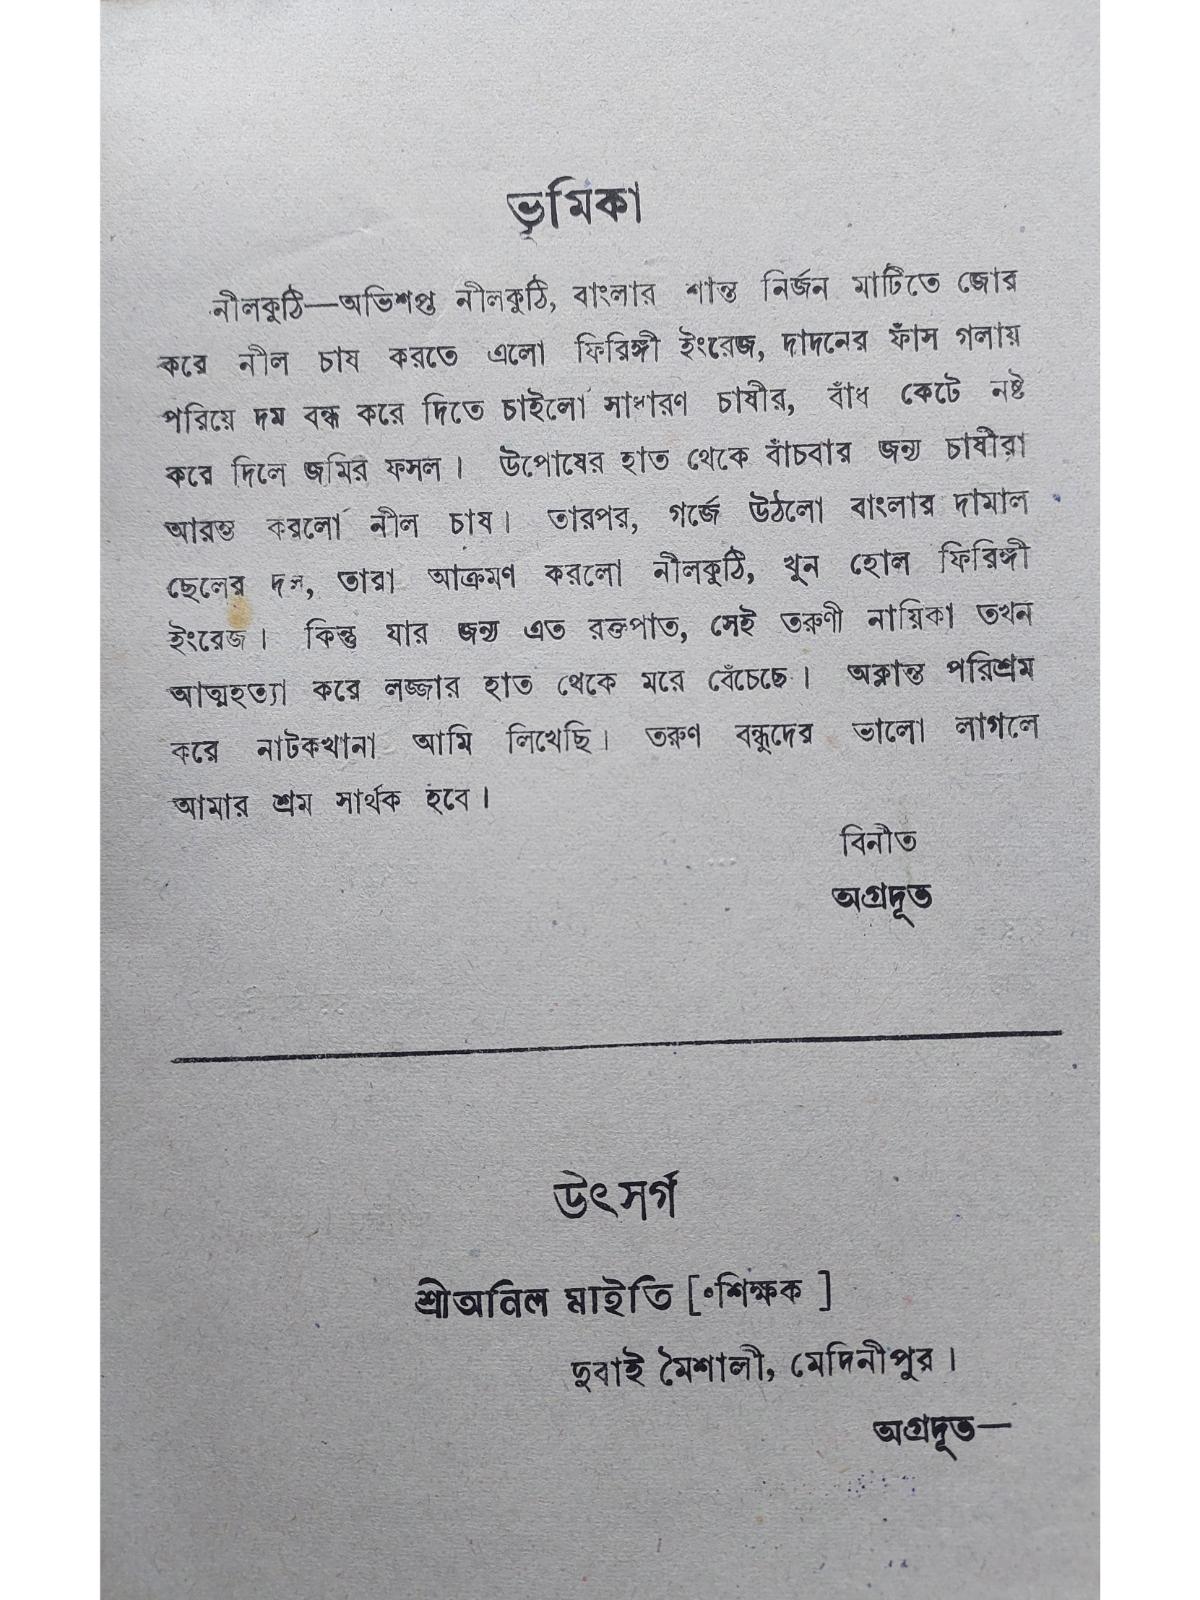 ভূমিকা
নীলকুঠি—অভিশপ্ত নীলকুঠি, বাংলার শান্ত নির্জন মাটিতে জোর
করে নীল চাষ করতে এলো ফিরিঙ্গী ইংরেজ, দাদনের ফাঁস গলায়
পরিয়ে দম বন্ধ করে দিতে চাইলো সাধারণ চাষীর, বাঁধ কেটে নষ্ট
করে দিলে জমির ফসল। উপোষের হাত থেকে বাঁচবার জন্য চাষীরা
আরম্ভ করলো নীল চাষ। তারপর, গর্জে উঠলো বাংলার দামাল
ছেলের দল, তারা আক্রমণ করলো নীলকুঠি, খুন হোল ফিরিঙ্গী
ইংরেজ। কিন্তু যার জন্য এত রক্তপাত, সেই তরুণী নায়িকা তখন
আত্মহত্যা করে লজ্জার হাত থেকে মরে বেঁচেছে। অক্লান্ত পরিশ্রম
করে নাটকখানা আমি লিখেছি। তরুণ বন্ধুদের ভালো লাগলে
আমার শ্রম সার্থক হবে।
বিনীত
অগ্রদূত
উৎসর্গ
শ্রীঅনিল মাইতি [ শিক্ষক ]
দুবাই মৈশালী, মেদিনীপুর।
অগ্রদূত—